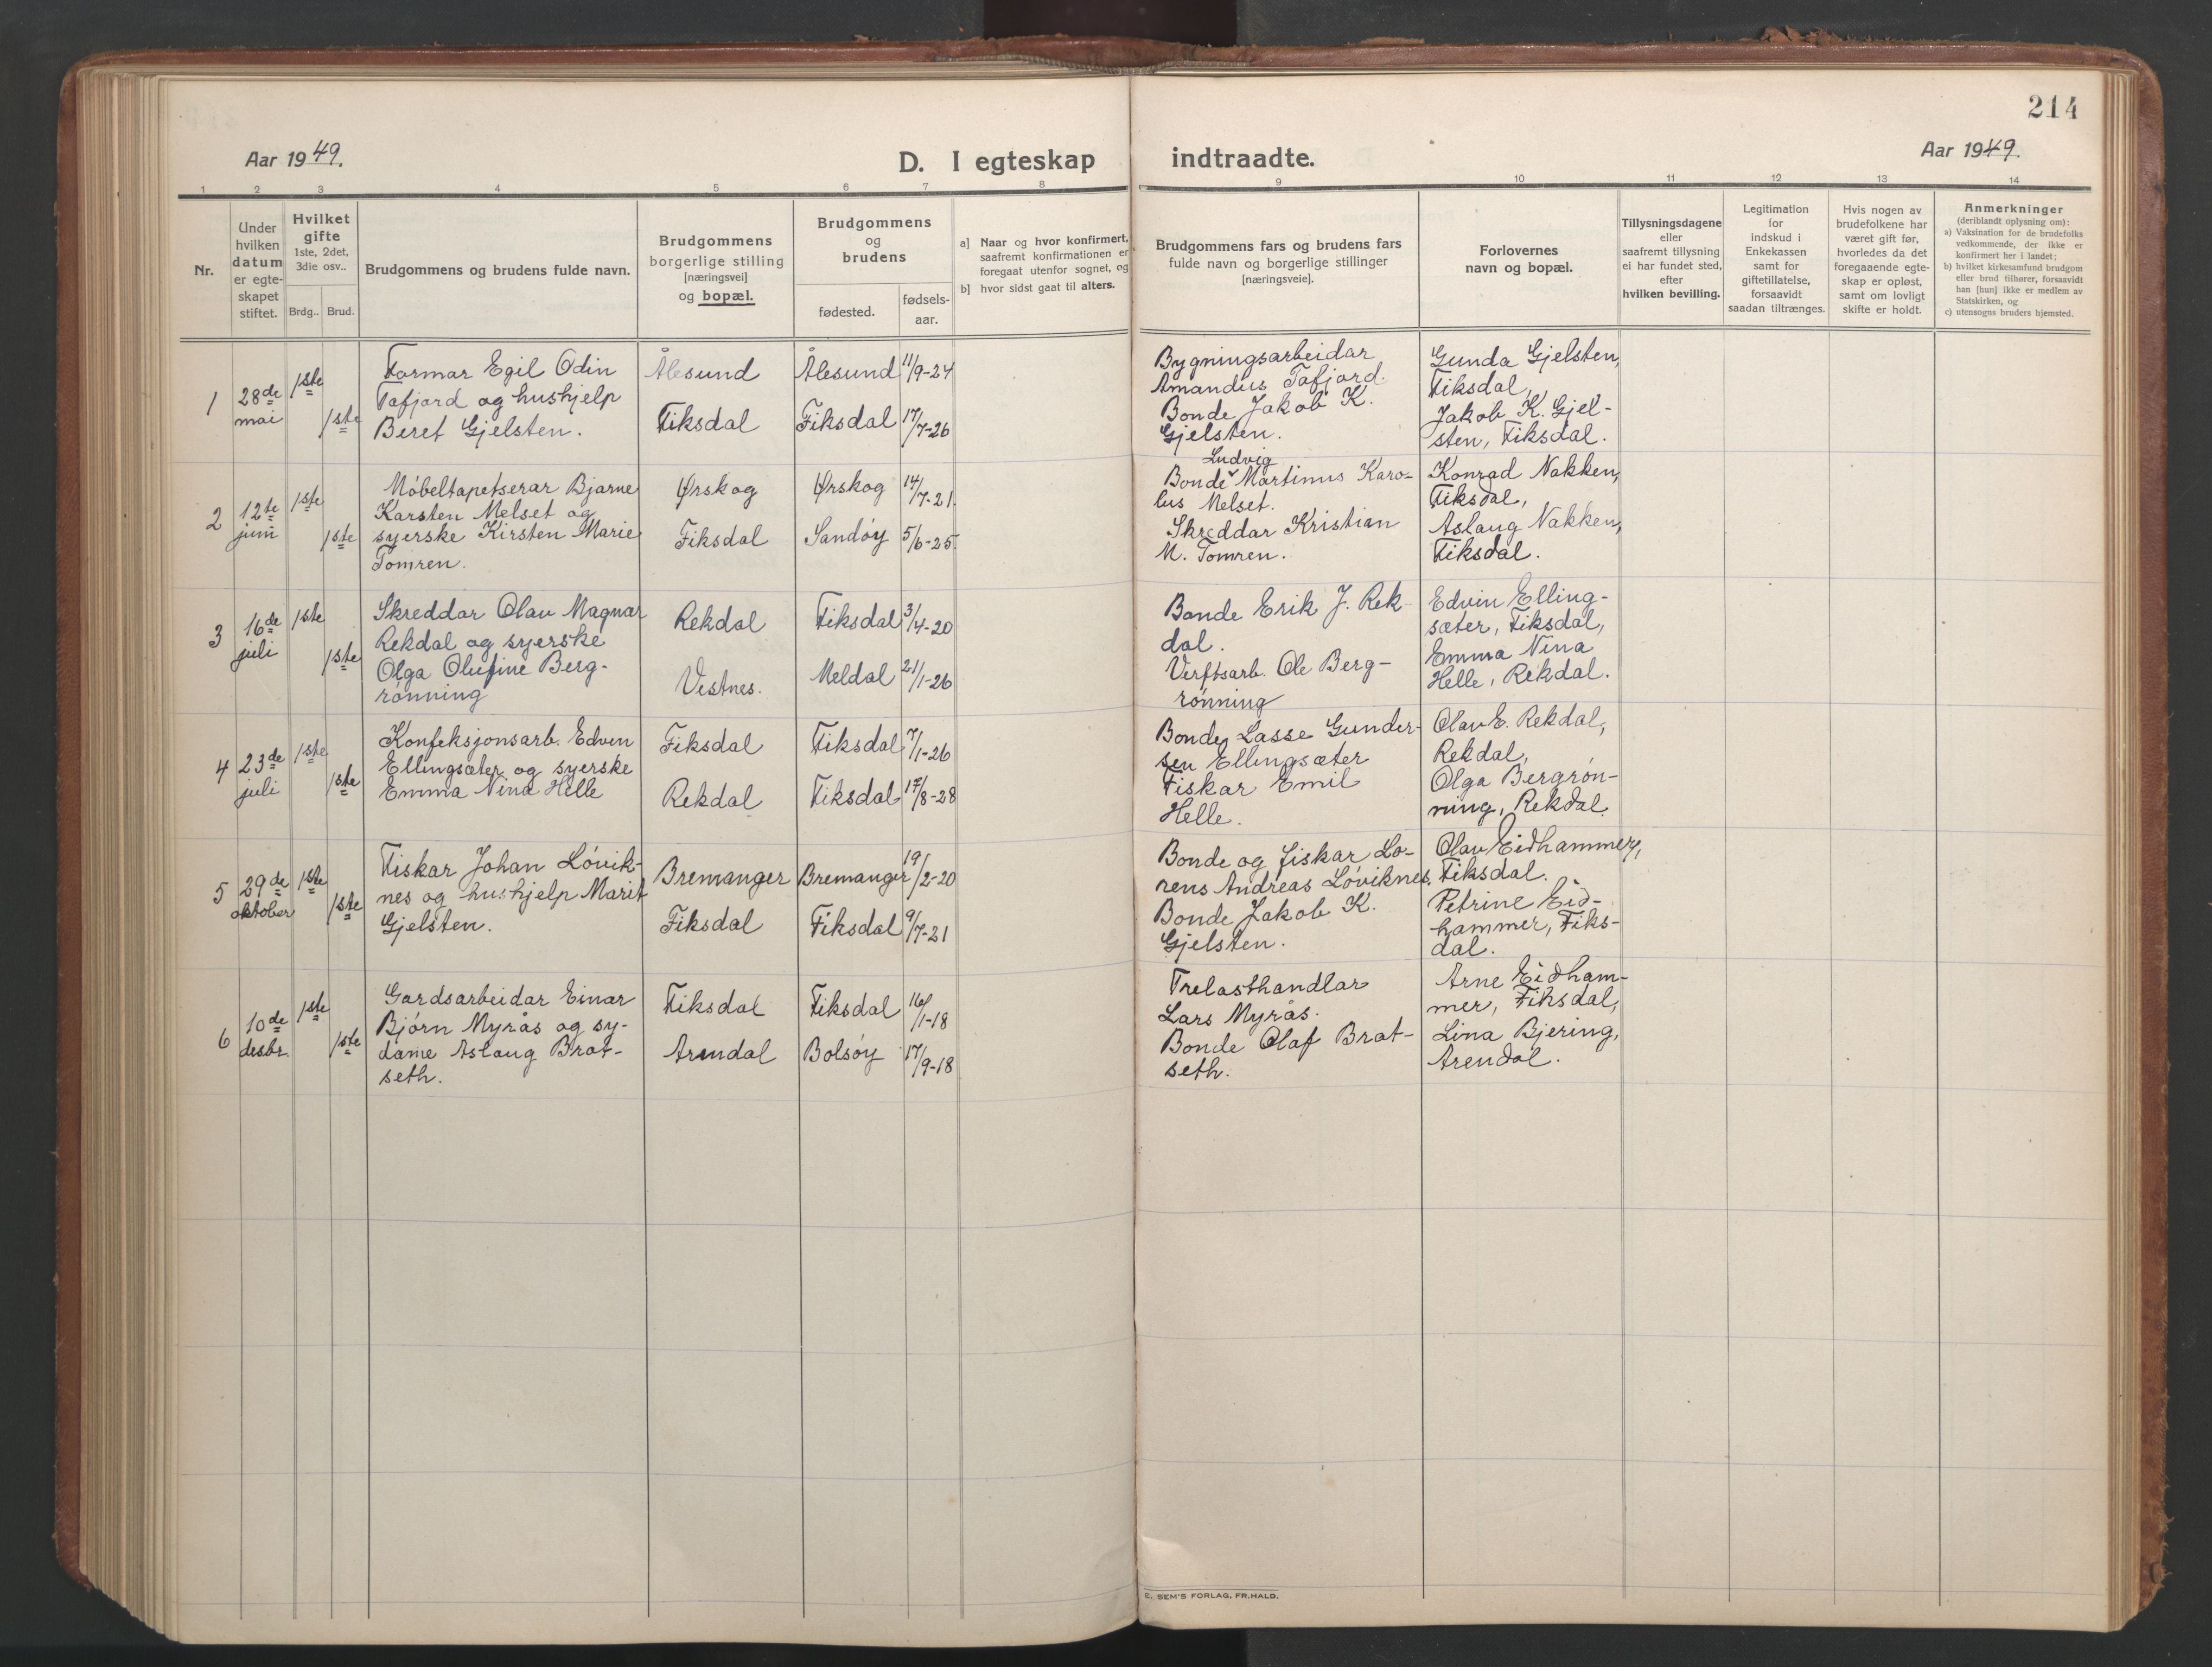 214
Aar 1949.
D. I egteskap indtraadte.
Aar 1949.
1 2 3 4 5 6 7 8 9 10 11 12 13 14
Nr.
Under
hvilken
datum
er egte-
skapet
stiftet.
Hvilket
gifte
1ste, 2det,
3die osv..
Brdg.. Brud.
Brudgommens og brudens fulde navn.
Brudgommens
borgerlige stilling
[næringsvei]
og bopæl.
Brudgommens
og
brudens
fødested.
fødsels-
aar.
a] Naar og hvor konfirmert,
saafremt konfirmationen er
foregaat utenfor sognet, og
b] hvor sidst gaat til alters.
Brudgommens fars og brudens fars
fulde navn og borgerlige stillinger
[næringsveie].
Forlovernes
navn og bopæl.
Tillysningsdagene
eller
saafremt tillysning
ei har fundet sted,
efter
hvilken bevilling.
Legitimation
for
indskud i
Enkekassen
samt for
giftetillatelse,
forsaavidt
saadan tiltrænges.
Hvis nogen av
brudefolkene har
været gift før,
hvorledes da det
foregaaende egte-
skap er opløst,
samt om lovligt
skifte er holdt.
Anmerkninger
(deriblandt oplysning om):
a) Vaksination for de brudefolks
vedkommende, der ikke er
konfirmert her i landet;
b) hvilket kirkesamfund brudgom
eller brud tilhører, forsaavidt
han [hun] ikke er medlem av
Statskirken, og
c) utensogns bruders hjemsted.
1
28de
mai
1ste
1ste
Formar Egil Odin
Tafjord og hushjelp
Beret Gjelsten.
Ålesund
Fiksdal
Ålesund
Fiksdal
11/9-24
17/7-26
Bygningsarbeidar
Amandus Tafjord.
Bonde Jakob K.
Gjelsten.
Gunda Gjelsten,
Fiksdal,
Jakob K. Gjel-
sten, Fiksdal.
2
12te
juni
1ste
1ste
Møbeltapetserar Bjarne
Karsten Melset og
syerske Kirsten Marie
Tomren.
Ørskog
Fiksdal
Ørskog
Sandøy
14/7-21.
5/6-25.
Ludvig
Bonde Martinus Karo-
lus Melset.
Skreddar Kristian
M. Tomren.
Konrad Nakken,
Fiksdal,
Aslaug Nakken,
Fiksdal.
3
16de
juli
1ste
1ste
Skreddar Olav Magnar
Rekdal og syerske
Olga Olufine Berg-
rønning
Rekdal
Vestnes.
Fiksdal
Meldal
3/4-20
21/1-26
Bonde Erik J. Rek-
dal.
Verftsarb. Ole Berg-
rønning
Edvin Elling-
sæter, Fiksdal,
Emma Nina
Helle, Rekdal.
4
23de
juli
1ste
1ste
Konfeksjonsarb. Edvin
Ellingsæter og syerske
Emma Nina Helle
Fiksdal
Rekdal
Fiksdal
Fiksdal
7/1-26
17/8-28
Bonde Lasse Gunder-
sen Ellingsæter
Fiskar Emil
Helle.
Olav E. Rekdal,
Rekdal,
Olga Bergrøn-
ning, Rekdal.
5
29de
oktober
1ste
1ste
Fiskar Johan Løvik-
nes og hushjelp Marit
Gjelsten.
Bremanger
Fiksdal
Bremanger
Fiksdal
19/2-20
9/7-21
Bonde og fiskar Lo-
rens Andreas Løviknes.
Bonde Jakob K.
Gjelsten.
Olav Eidhammer,
Fiksdal.
Petrine Eid-
hammer, Fiks-
dal.
6
10de
desbr.
1ste
1ste
Gardsarbeidar Einar
Bjørn Myrås og sy-
dame Aslaug Brat-
seth.
Fiksdal
Arendal
Fiksdal
Bolsøy
16/1-18
17/9-18
Trelasthandlar
Lars Myrås.
Bonde Olaf Brat-
seth.
Arne Eidham-
mer, Fiksdal,
Lina Bjering,
Arendal.
E. SEM'S FORLAG, FR.HALD.